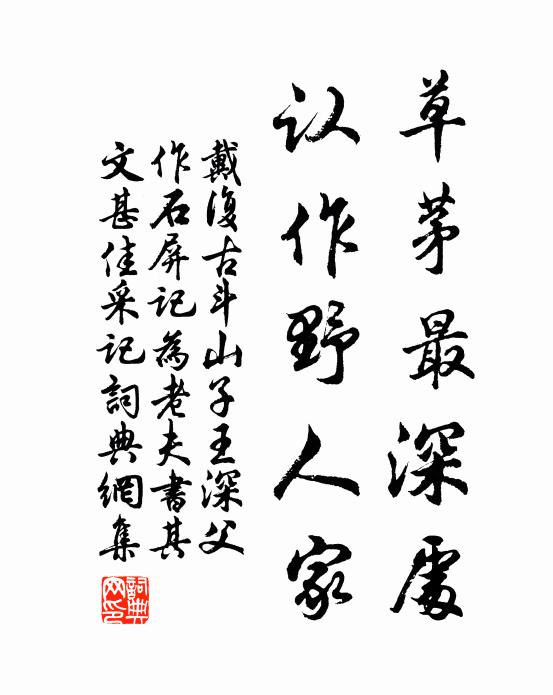 草茅最深處
认作野人家
戴復古斗山子王深父
作石屏記為老夫書其
文甚佳采記詞典網集
詞典网印